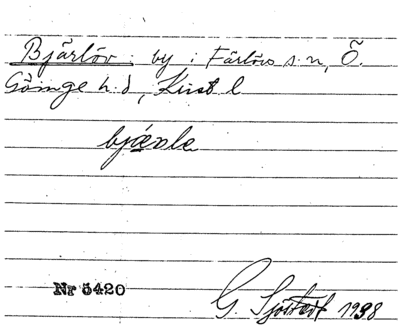 Bjärlöv : by i Färlövs s:n, Ö.
Göinge h:d, Krist l
bjǽrla
Nr 5420
G. Sjöstedt 1938